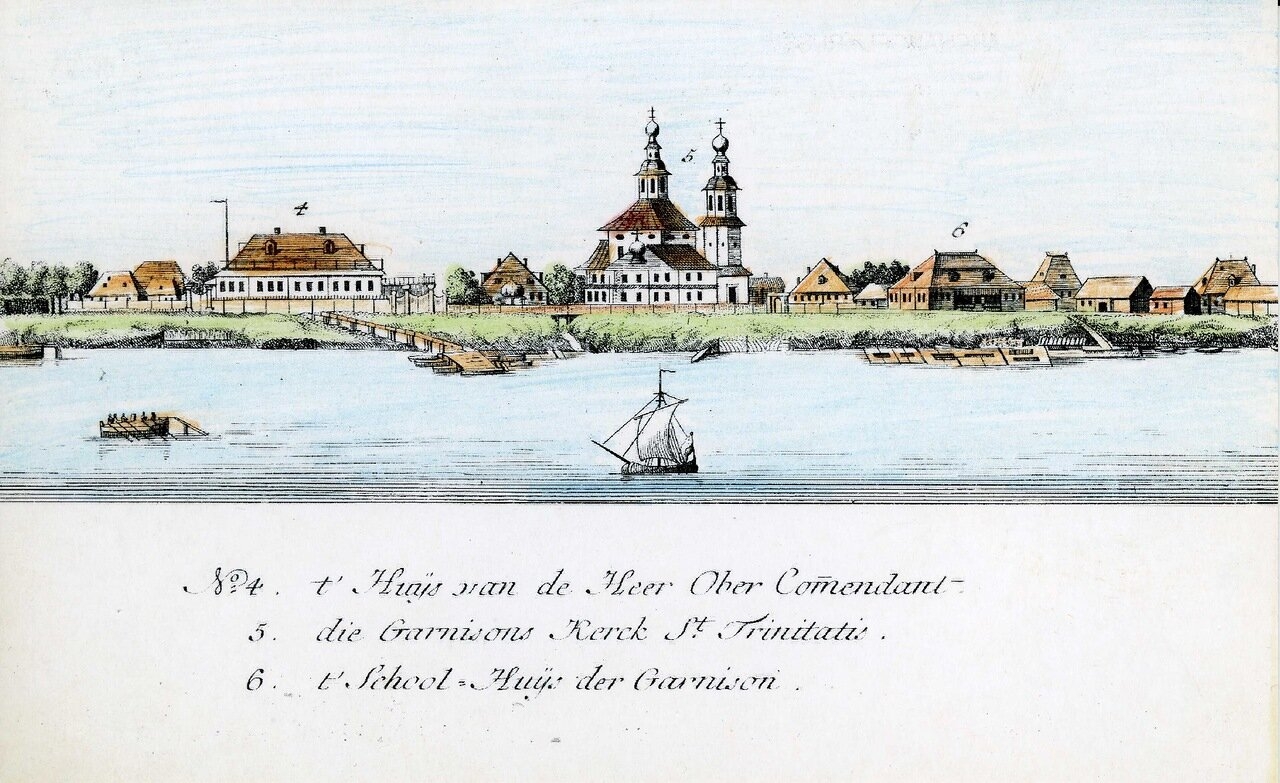 4
5
6
No 4. t' Huÿs van de Heer Ober Com̄endant
5. die Garnisons Kerck St Trinitatis.
6. t' School=Huÿs der Garnison.